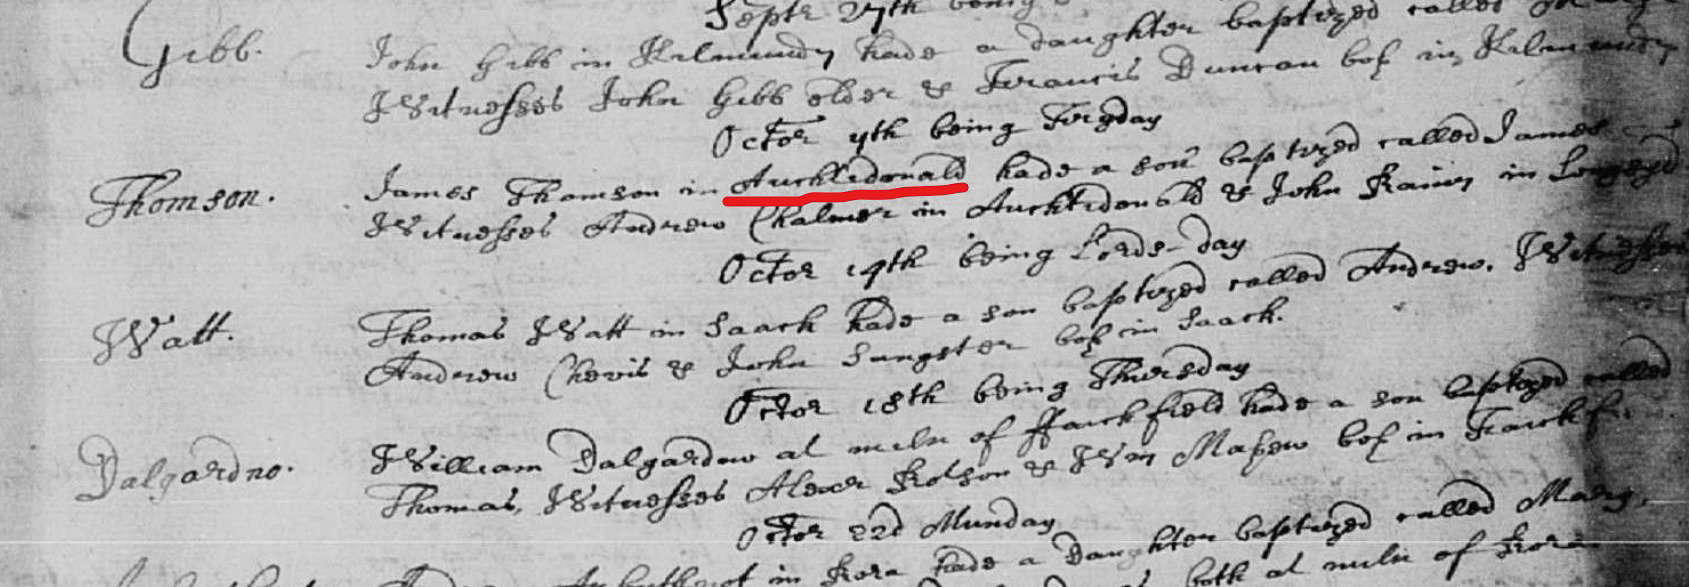 Septr 27th being
Gibb. John Gibb in Kilmundy hade a daughter baptized called
Witnesses John Gibb elder & Francis Duncan bos in Kilmundy
Octor 9th being Teysday
Thomson. James Thomson in Auchlidonald hade a son baptized called James
Witnesses Andrew Chalmer in Auchlidonald & John Rainy in
Octor 14th being Lords-day
Watt. Thomas Watt in Saack hade a son baptized called Andrew. Witnesses
Andrew Chevis & John Sangster bos in Saack.
Octor 18th being Thursday
Dalgardno. William Dalgardno at miln of hade a son baptized called
Thomas, Witnesses Alexr Robson & Wm Mathew bos in
Octor 22d Munday
in hade a Daughter baptized called Mary,
both at miln of